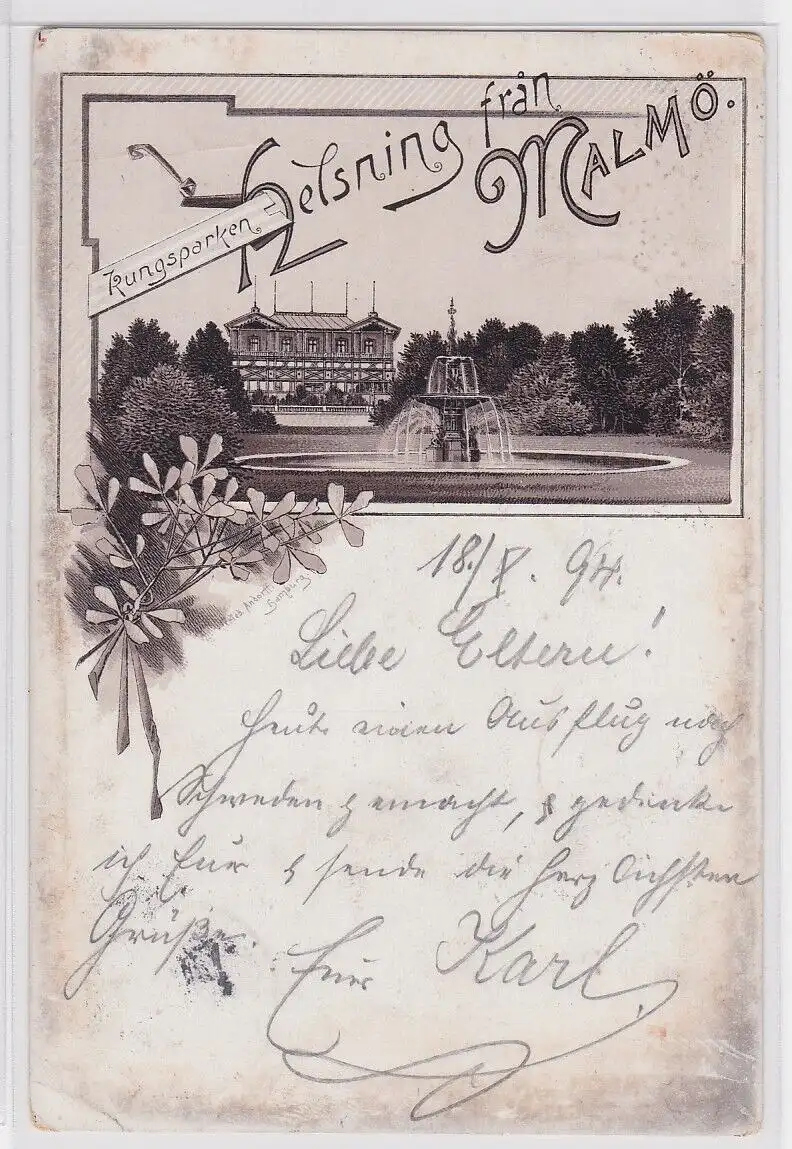 Helsning från MALMÖ.
Kungsparken
Hamburg
18./X. 94.
Liebe Eltern!
Heute einen Ausflug nach
Schweden gemacht, gedenke
ich Eurer & sende die herzlichsten
Grüße. Euer Karl